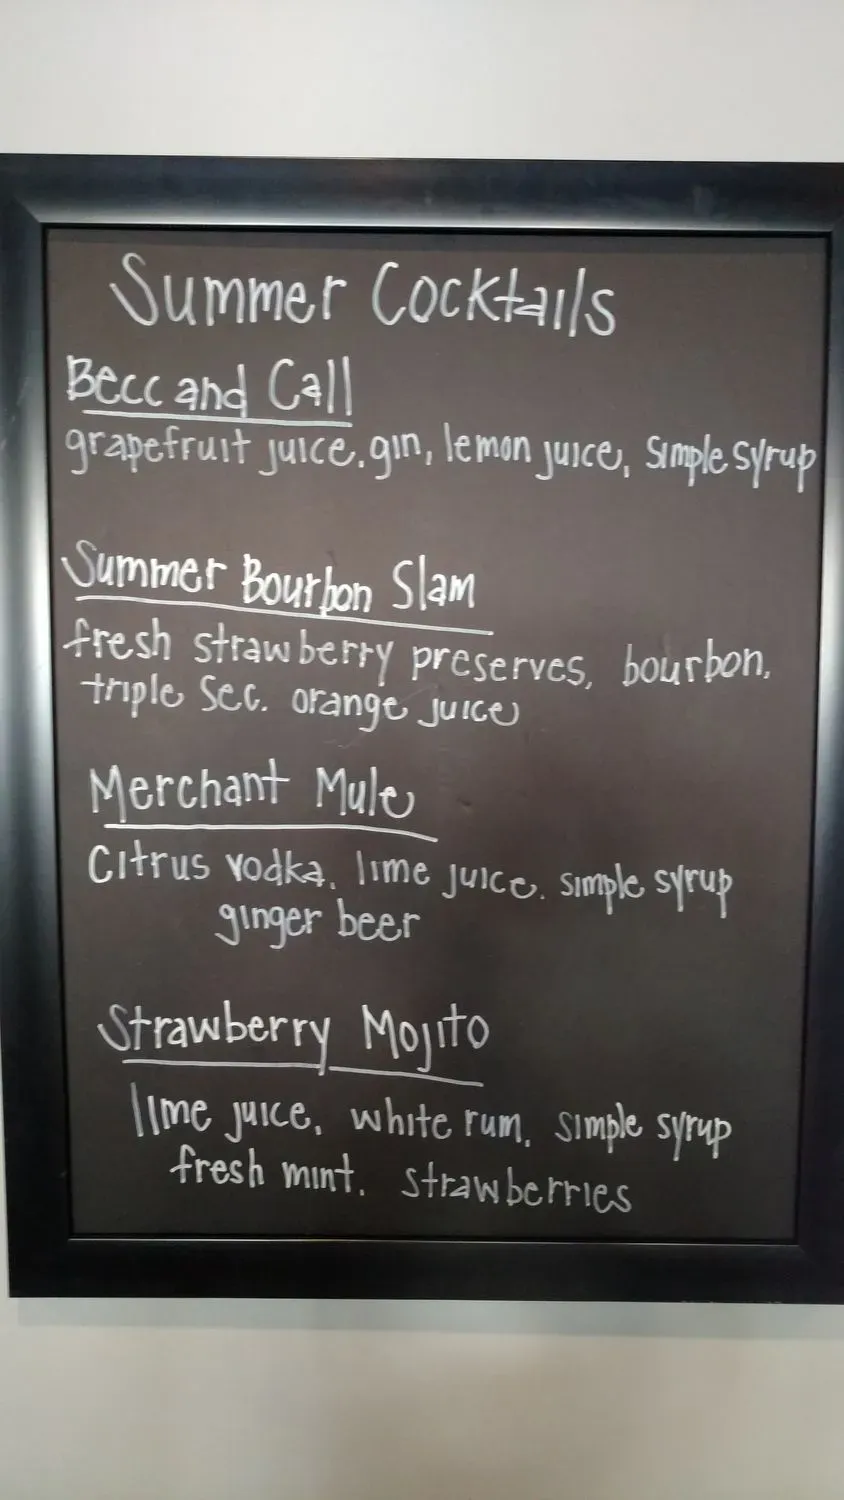 Summer Cocktails
Becc and Call
grapefruit juice, gin, lemon juice, simple syrup
Summer Bourbon Slam
fresh strawberry preserves, bourbon,
triple sec. orange juice
Merchant Mule
Citrus vodka, lime juice. simple syrup
ginger beer
Strawberry Mojito
lime juice, white rum, simple syrup
fresh mint. strawberries